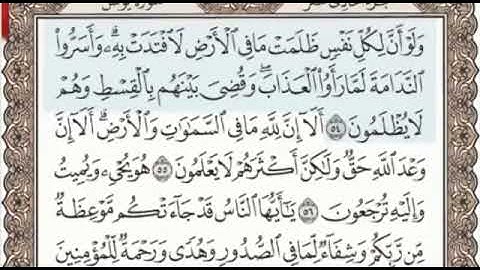 سورة يونس
وَلَوْ أَنَّ لِكُلِّ نَفْسٍ ظَلَمَتْ مَا فِي ٱلْأَرْضِ لَٱفْتَدَتْ بِهِۦۗ وَأَسَرُّوا۟
ٱلنَّدَامَةَ لَمَّا رَأَوُا۟ ٱلْعَذَابَۖ وَقُضِيَ بَيْنَهُم بِٱلْقِسْطِ وَهُمْ
لَا يُظْلَمُونَ ٥٤ أَلَآ إِنَّ لِلَّهِ مَا فِي ٱلسَّمَٰوَٰتِ وَٱلْأَرْضِۗ أَلَآ إِنَّ
وَعْدَ ٱللَّهِ حَقٌّ وَلَٰكِنَّ أَكْثَرَهُمْ لَا يَعْلَمُونَ ٥٥ هُوَ يُحْيِۦ وَيُمِيتُ
وَإِلَيْهِ تُرْجَعُونَ ٥٦ يَٰٓأَيُّهَا ٱلنَّاسُ قَدْ جَآءَتْكُم مَّوْعِظَةٌ
مِّن رَّبِّكُمْ وَشِفَآءٌ لِّمَا فِي ٱلصُّدُورِ وَهُدًى وَرَحْمَةٌ لِّلْمُؤْمِنِينَ